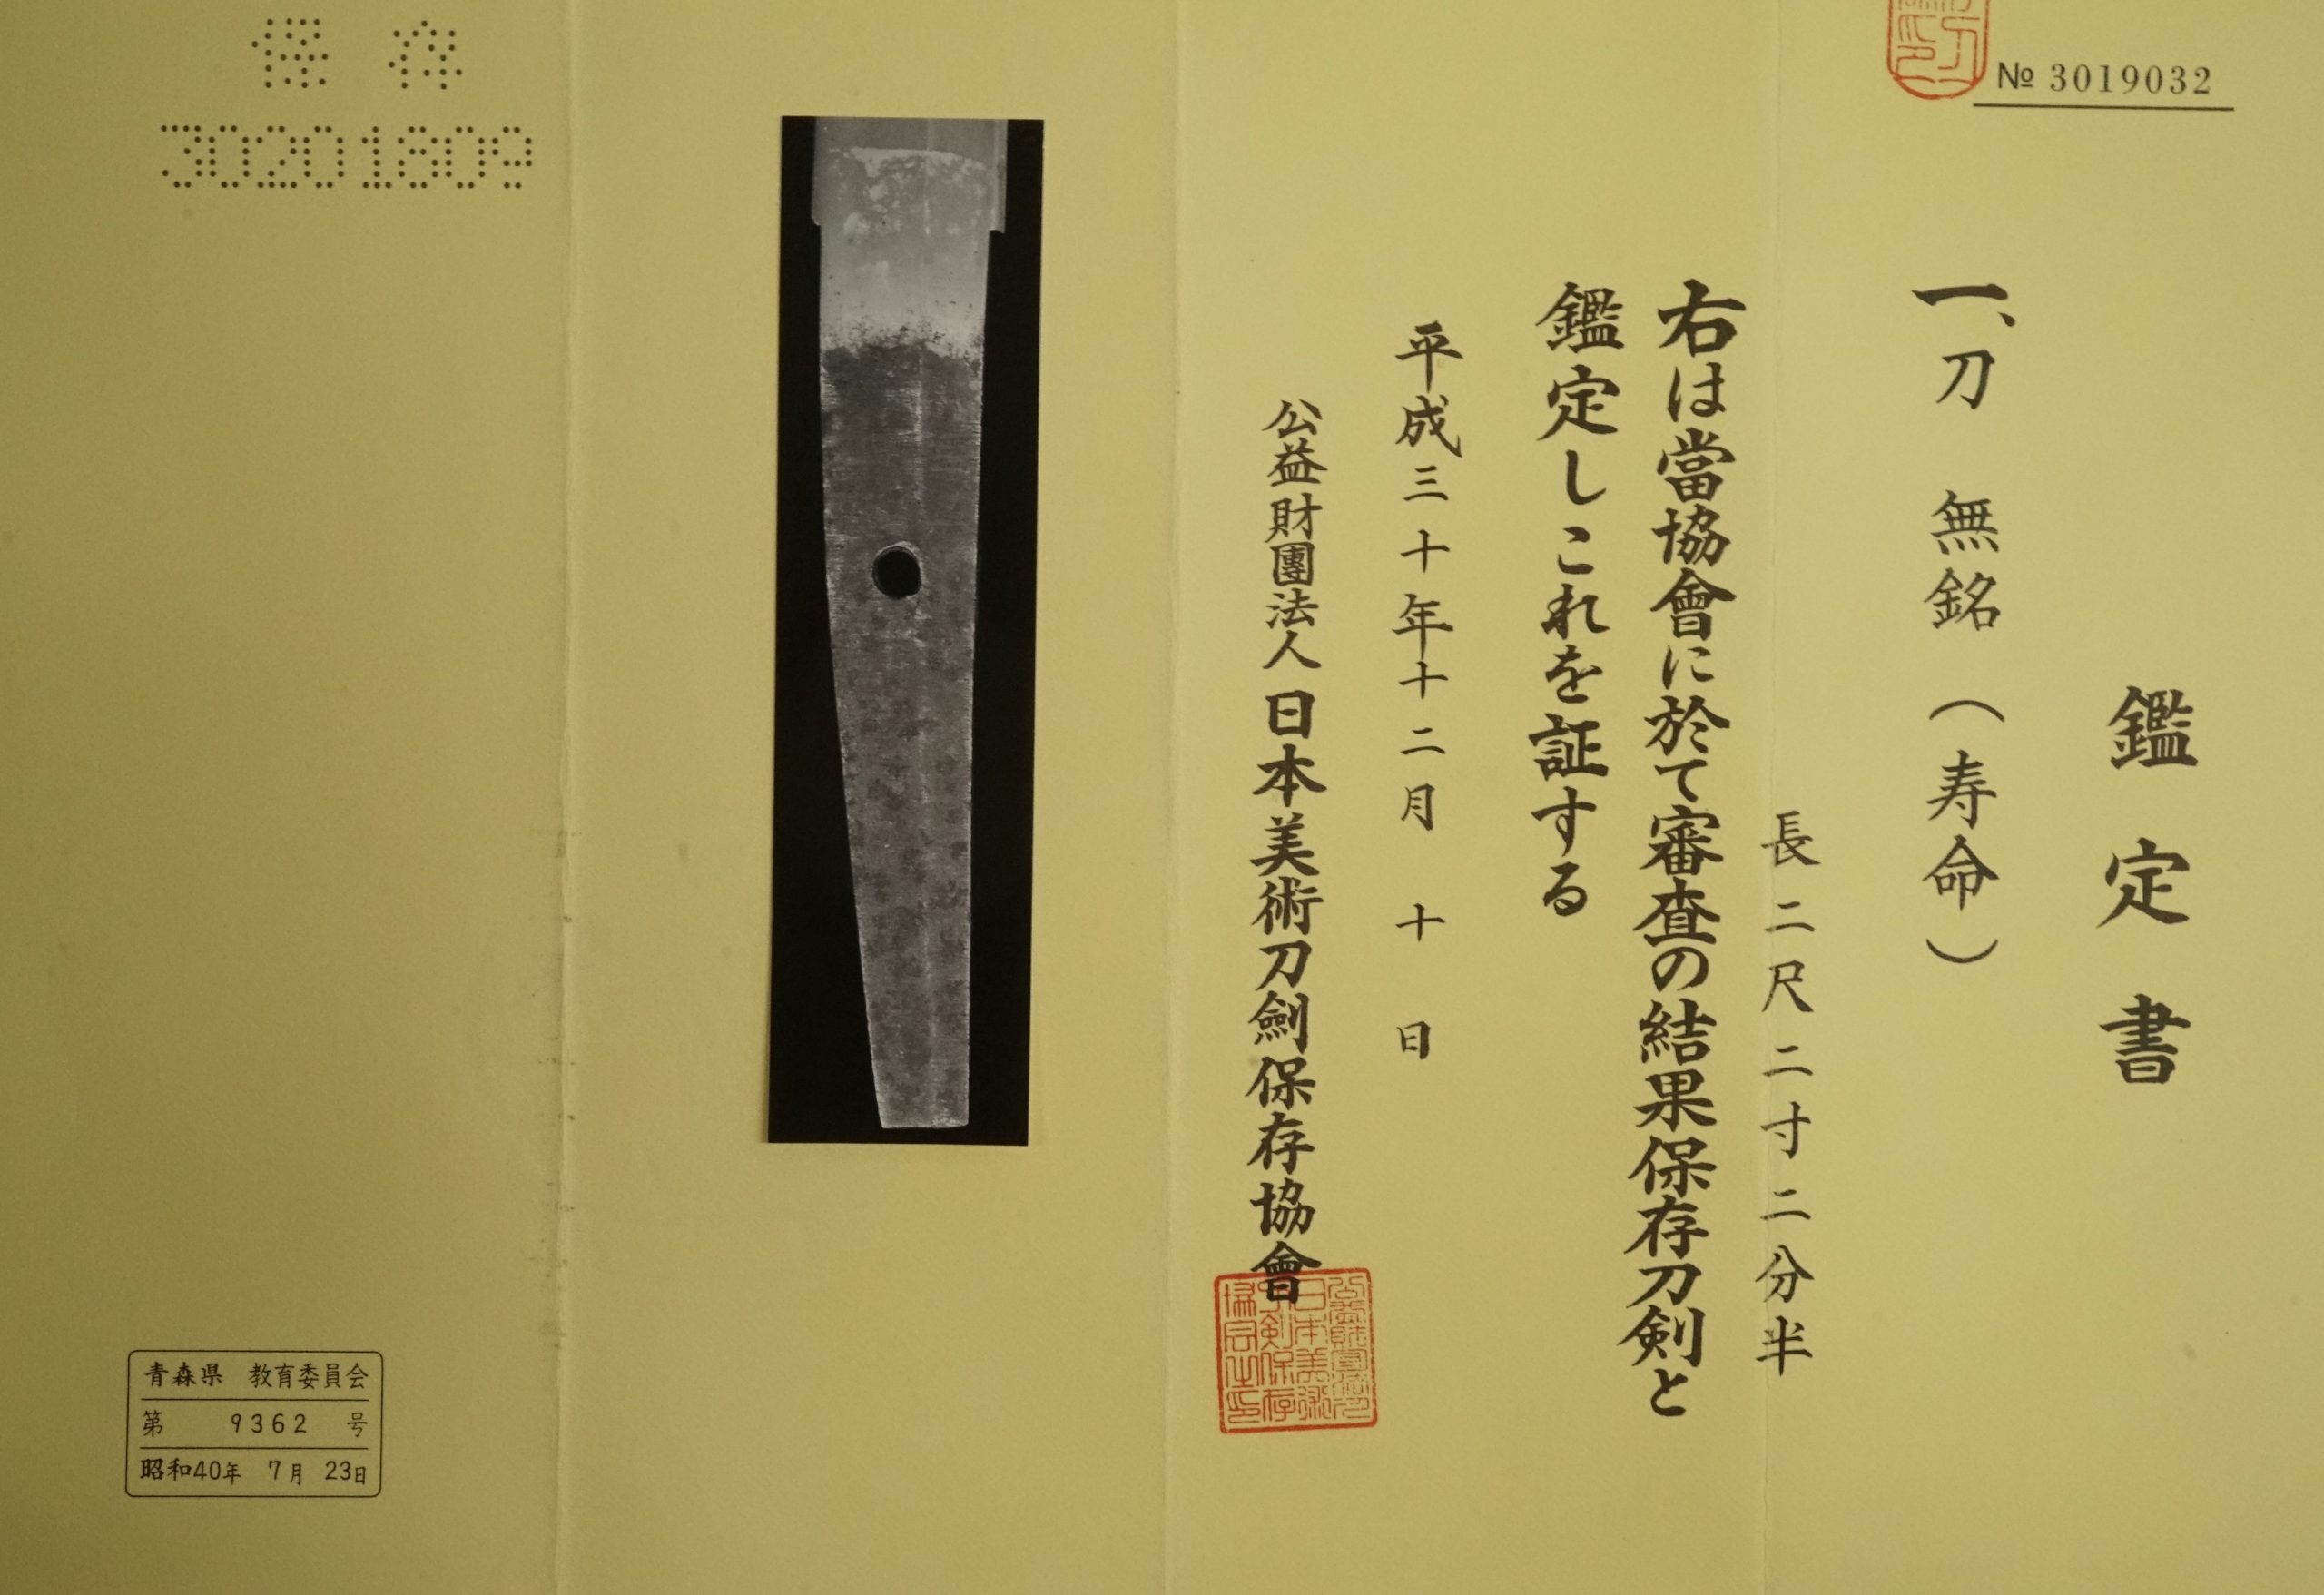 № 3019032
鑑定書
一、刀 無銘（寿命）
長二尺二寸二分半
右は當協會に於て審査の結果保存刀剣と
鑑定しこれを証する
平成三十年十二月 十 日
公益財團法人日本美術刀劍保存協會
保存
30201809
青森県 教育委員会
第 9362 号
昭和40年 7月 23日